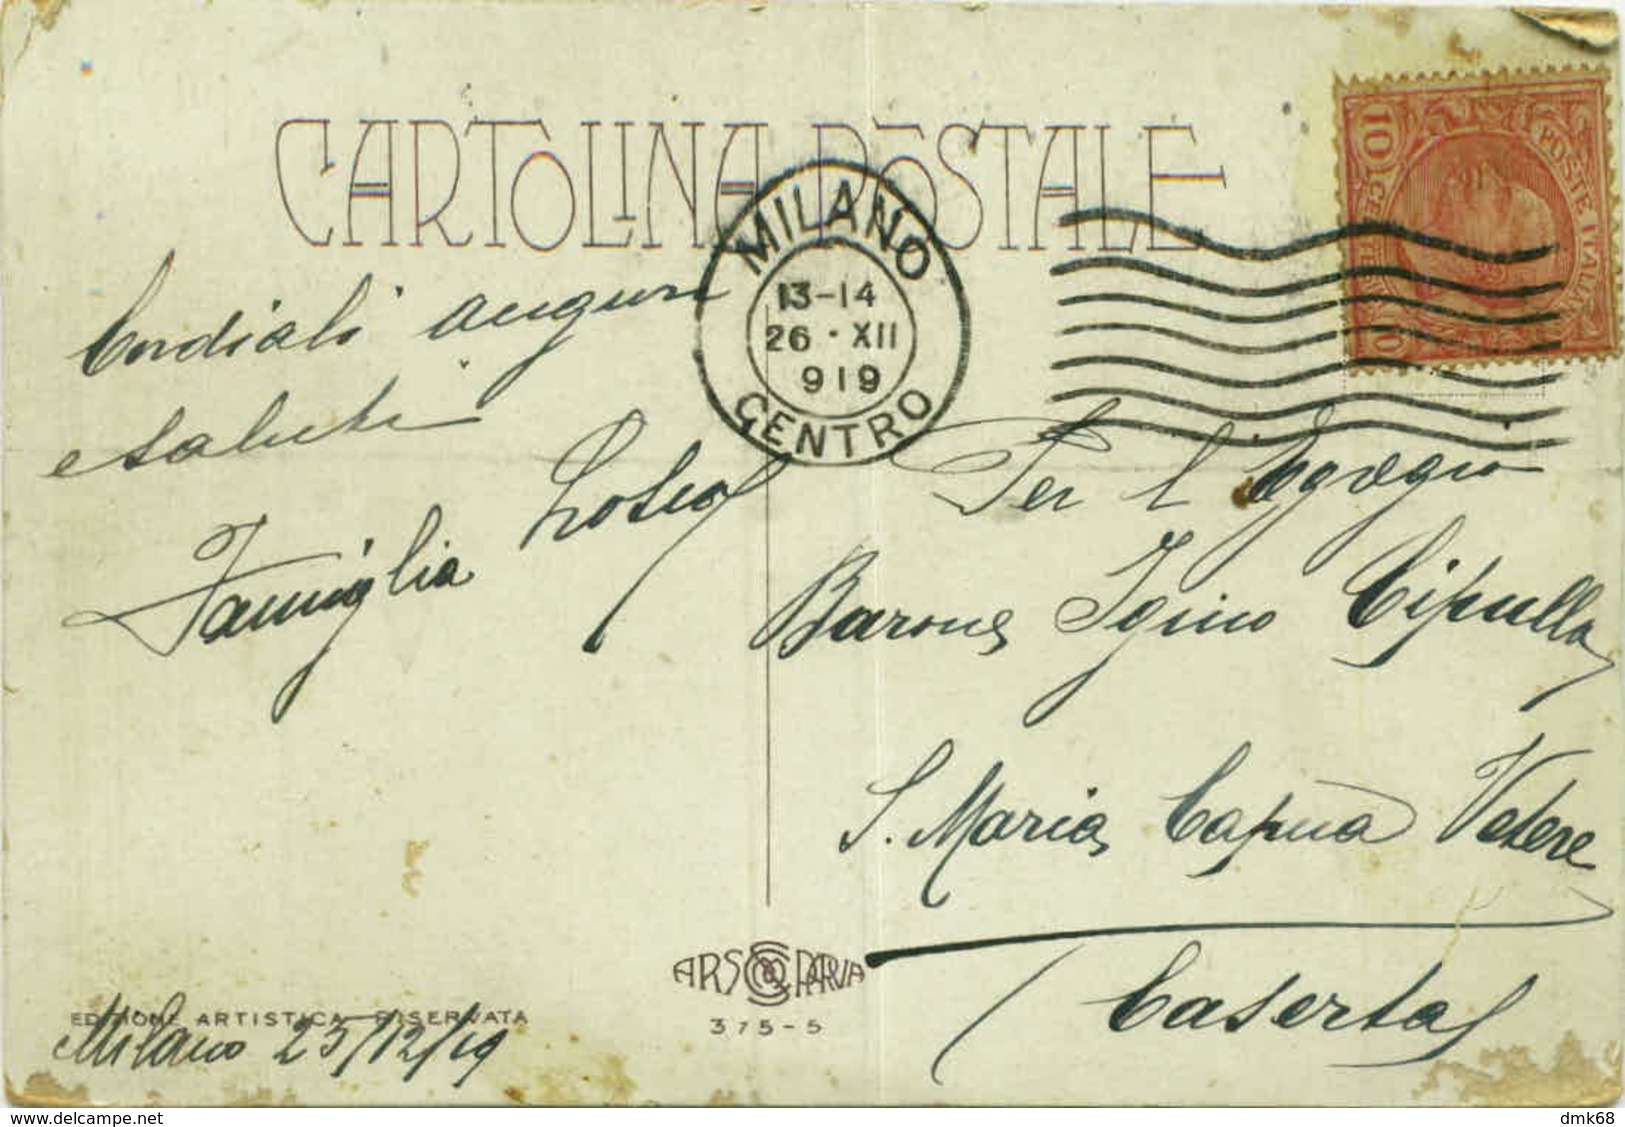 CARTOLINA POSTALE
MILANO
13-14
26·XII
919
CENTRO
POSTE ITALIANE
10
Cordiali auguri
e saluti
Famiglia
Per l'Egregio
Barone Igino Cipulla
S. Maria Capua Vetere
Caserta
ARS PARVA
375-5
EDIZIONE ARTISTICA RISERVATA
Milano 25/12/19
delcampe.net
dmk68